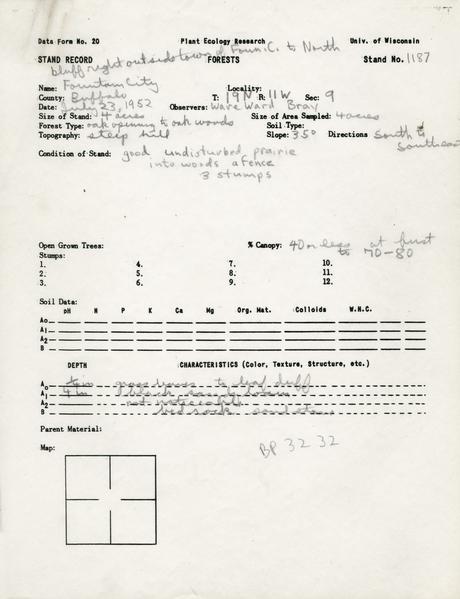 Data Form No. 20 Plant Ecology Research Univ. of Wisconsin
STAND RECORD FORESTS Stand No. 1187
bluff right outside town of Foun. C. to North
Name: Fountain City Locality:
County: Buffalo T: 19N R: 11W Sec: 9
Date: July 23, 1952 Observers: Ware Ward Bray
Size of Stand: 4 acres Size of Area Sampled: 4 acres
Forest Type: oak opening to oak woods Soil Type:
Topography: steep hill Slope: 35° Directions South to Southeast
Condition of Stand: good undisturbed prairie
into woods a fence
3 stumps
Open Grown Trees: % Canopy: 40 or less at first
to 70-80
Stumps:
1. 4. 7. 10.
2. 5. 8. 11.
3. 6. 9. 12.
Soil Data:
pH N P K Ca Mg Org. Mat. Colloids W.H.C.
Ao
A1
A2
B
DEPTH CHARACTERISTICS (Color, Texture, Structure, etc.)
Ao grass leaves to leaf duff
A1 4 in black sandy loam
A2 not noticeable
B bed rock sandstone
Parent Material:
BP 32 32
Map: